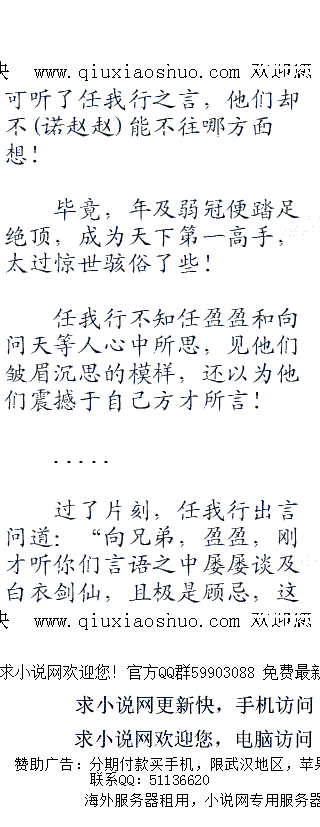 快 www.qiuxiaoshuo.com 欢迎您
可听了任我行之言，他们却
不(诺赵赵)能不往哪方面
想！
毕竟，年及弱冠便踏足
绝顶，成为天下第一高手，
太过惊世骇俗了些！
任我行不知任盈盈和向
问天等人心中所思，见他们
皱眉沉思的模样，还以为他
们震撼于自己方才所言！
.....
过了片刻，任我行出言
问道：“向兄弟，盈盈，刚
才听你们言语之中屡屡谈及
白衣剑仙，且极是顾忌，这
快 www.qiuxiaoshuo.com 欢迎您
求小说网欢迎您！官方QQ群59903088 免费最新
求小说网更新快，手机访问
求小说网欢迎您，电脑访问
赞助广告：分期付款买手机，限武汉地区，苹果
联系QQ：51136620
海外服务器租用，小说网专用服务器